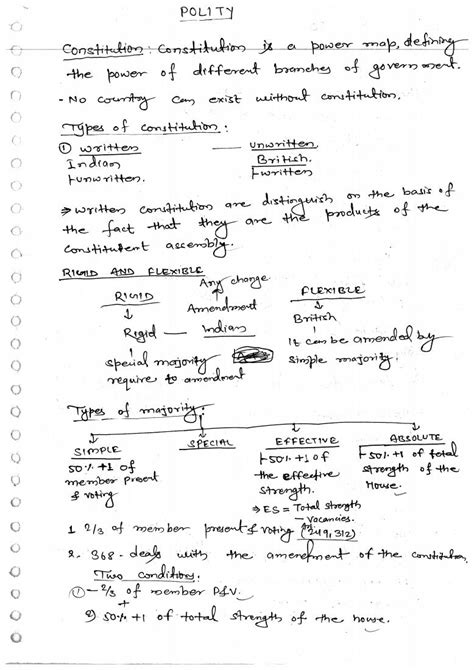 POLITY
Constitution: Constitution is a power map, defining
the power of different branches of government.
- No country can exist without constitution.
Types of constitution:
① written — unwritten
Indian British
unwritten. written
⇒ written constitution are distinguish on the basis of
the fact that they are the products of the
constituent assembly.
RIGID AND FLEXIBLE
Any change
RIGID Amendment FLEXIBLE
↓ ↑ ↓
Rigid — Indian British
↓ ↓
special majority It can be amended by
require to amendment simple majority.
Types of majority:
SIMPLE SPECIAL EFFECTIVE ABSOLUTE
50% +1 of 50% +1 of 50% +1 of total
member present the effective strength of the
& voting strength. House.
⇒ ES = Total strength
– Vacancies.
1 2/3 of member present & voting (249, 312)
2. 368 - deals with the amendment of the constitution.
Two conditions.
① – 2/3 of member P&V.
+
2) 50% +1 of total strength of the house.